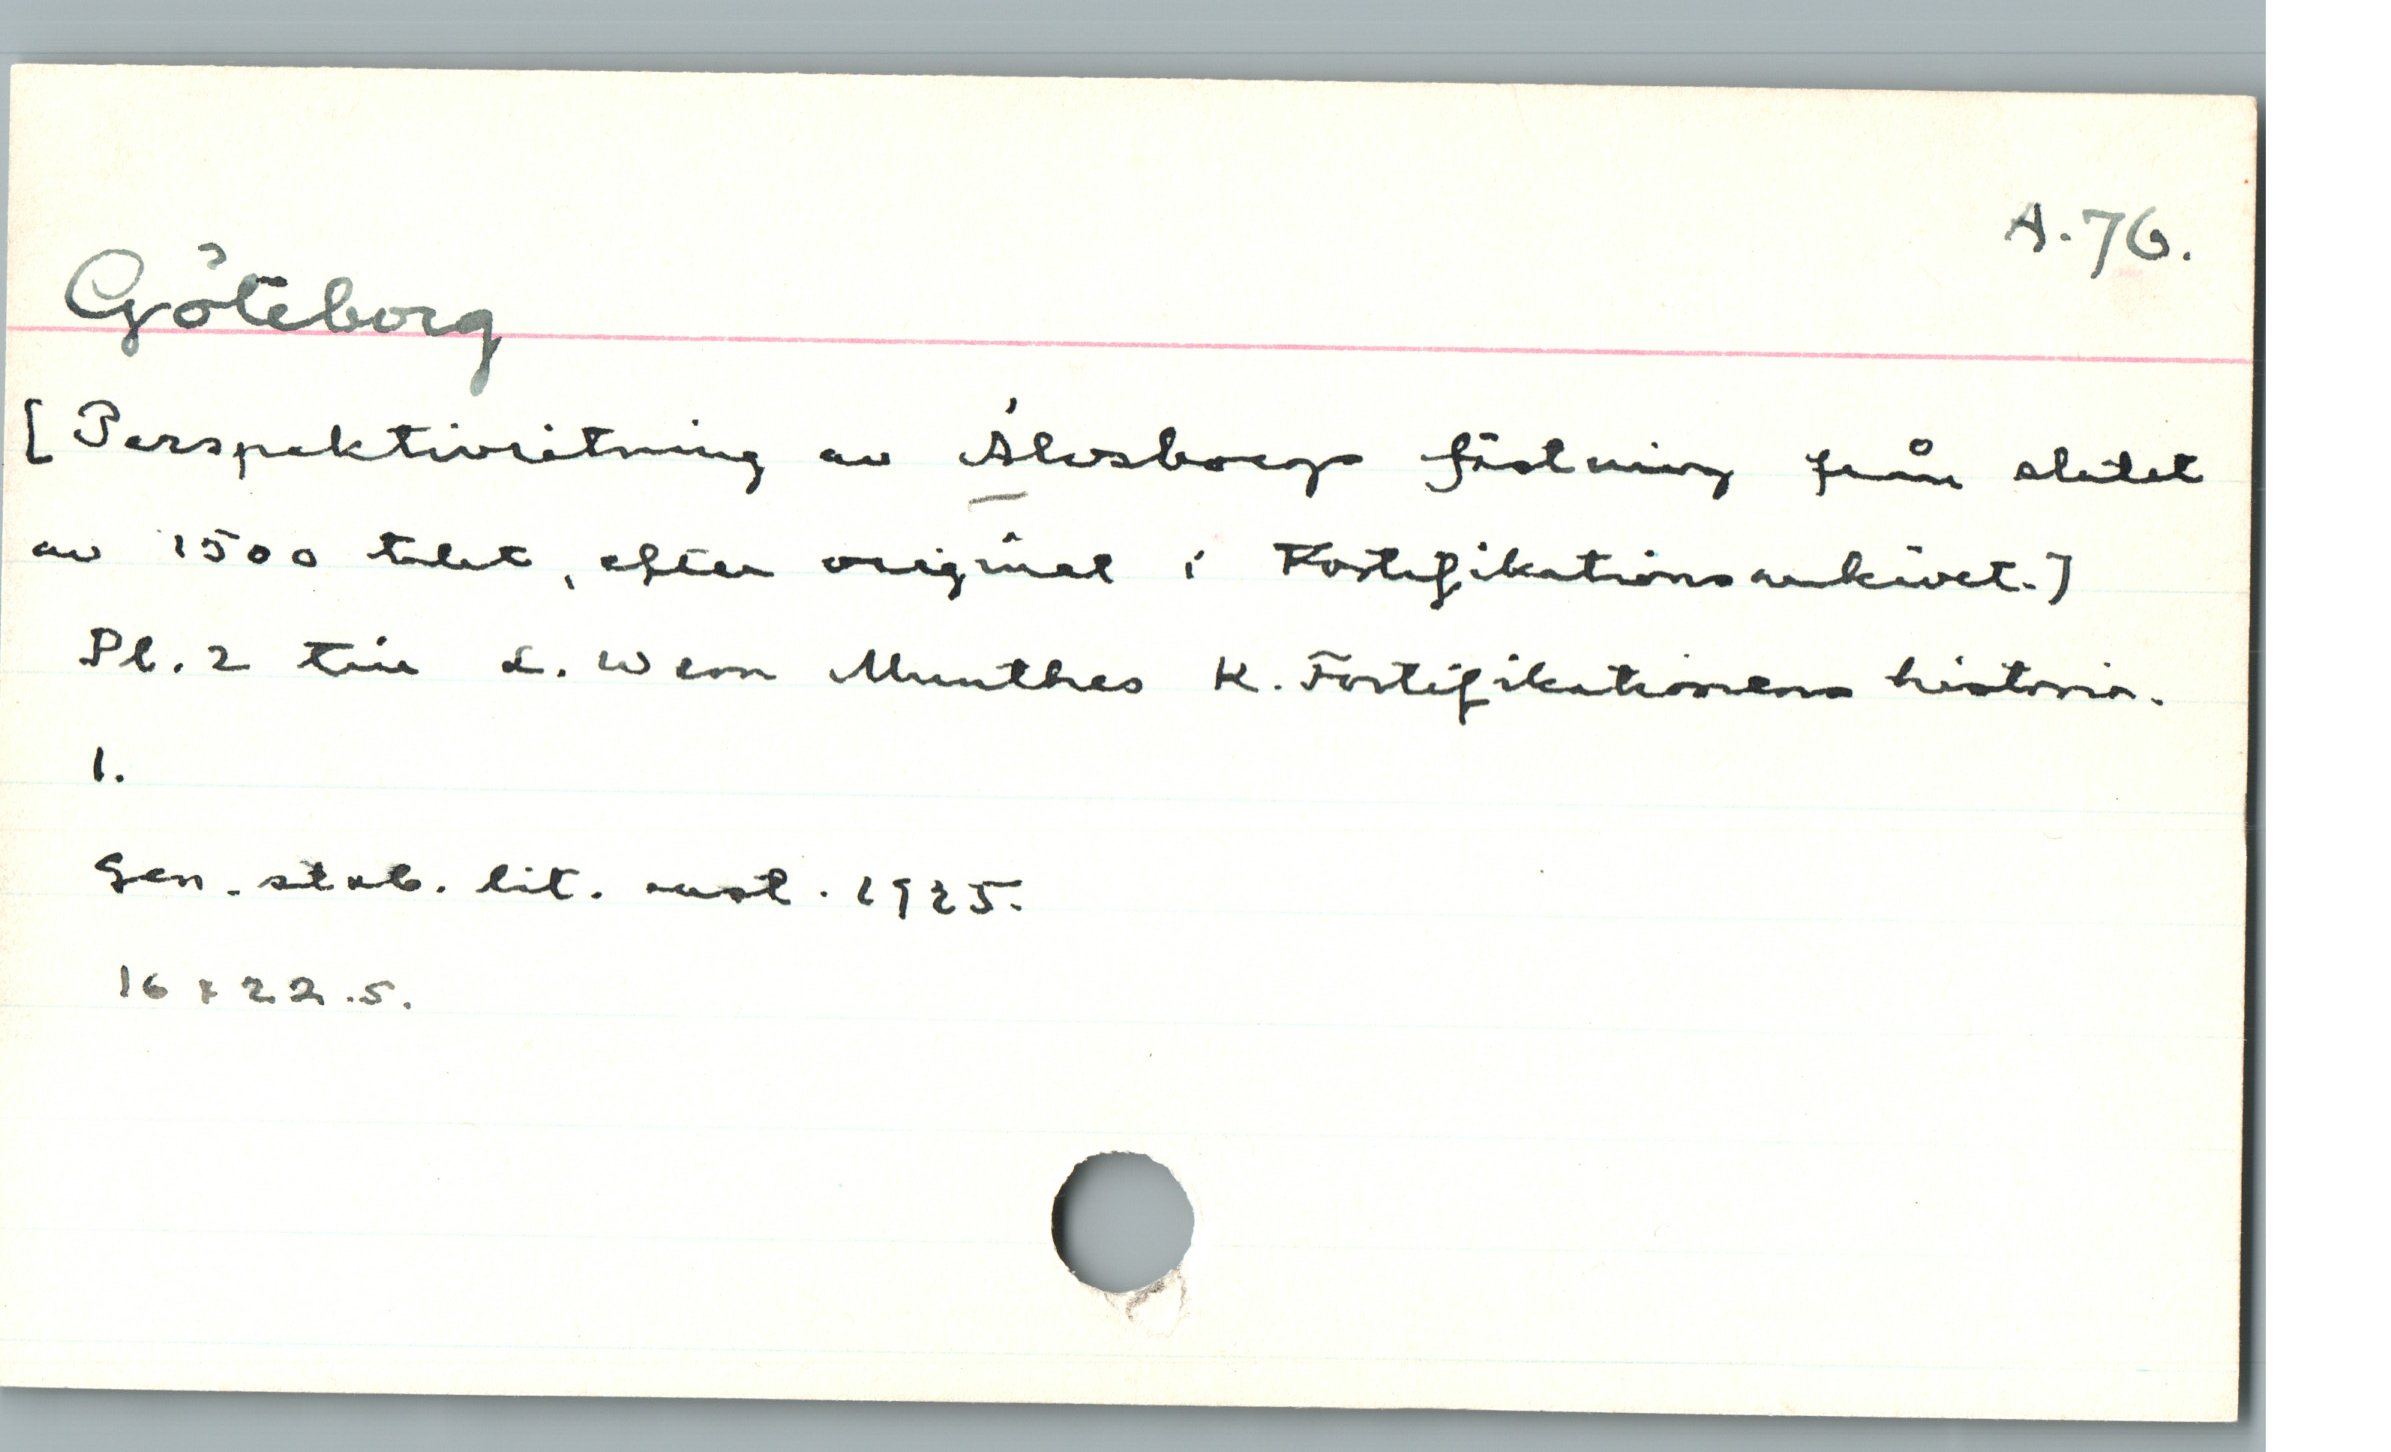 A.76.
Göteborg
[Perspektivritning av Älvsborgs fästning från slutet
av 1500 talet, efter original i Fortifikationsarkivet.]
Pl. 2 till L. W:son Munthes K. Fortifikationens historia.
1.
Gen. stab. lit. anst. 1925.
16 x 22.5.